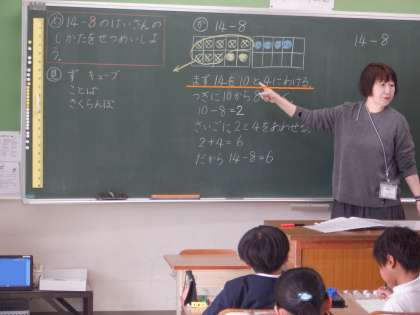 め 14-8のけいさんの
しかたをせつめいしよ
う。
見 ず キューブ
ことば
さくらんぼ
か 14-8
まず14を10と4にわける
つぎに10から8
10-8=2
さいごに2と4をあわせる
2+4=6
だから14-8=6
14-8